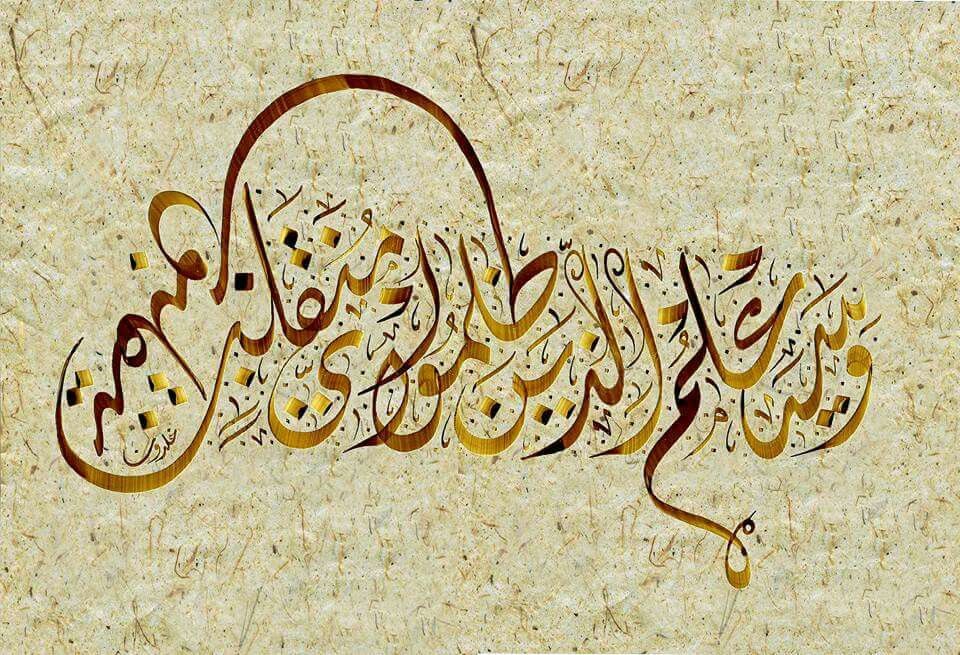 وَسَيَعْلَمُ الَّذِينَ ظَلَمُوا أَيَّ مُنقَلَبٍ يَنقَلِبُونَ
خلدون